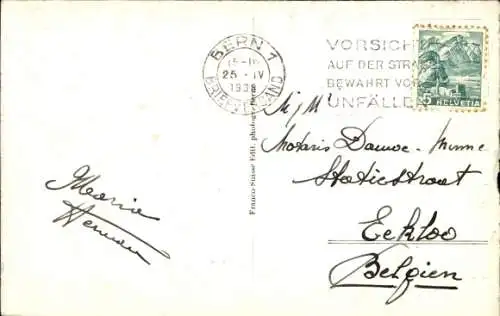 BERN 1
15-16
25. IV
1938
BRIEFVERSAND
VORSICHT
AUF DER STRASSE
BEWAHRT VOR
UNFÄLLEN
5 HELVETIA
Franco-Suisse Edit. photogr.
Notaris Dauwe-Minne
Statiestraat
Eekloo
Belgien
Maria
Herman